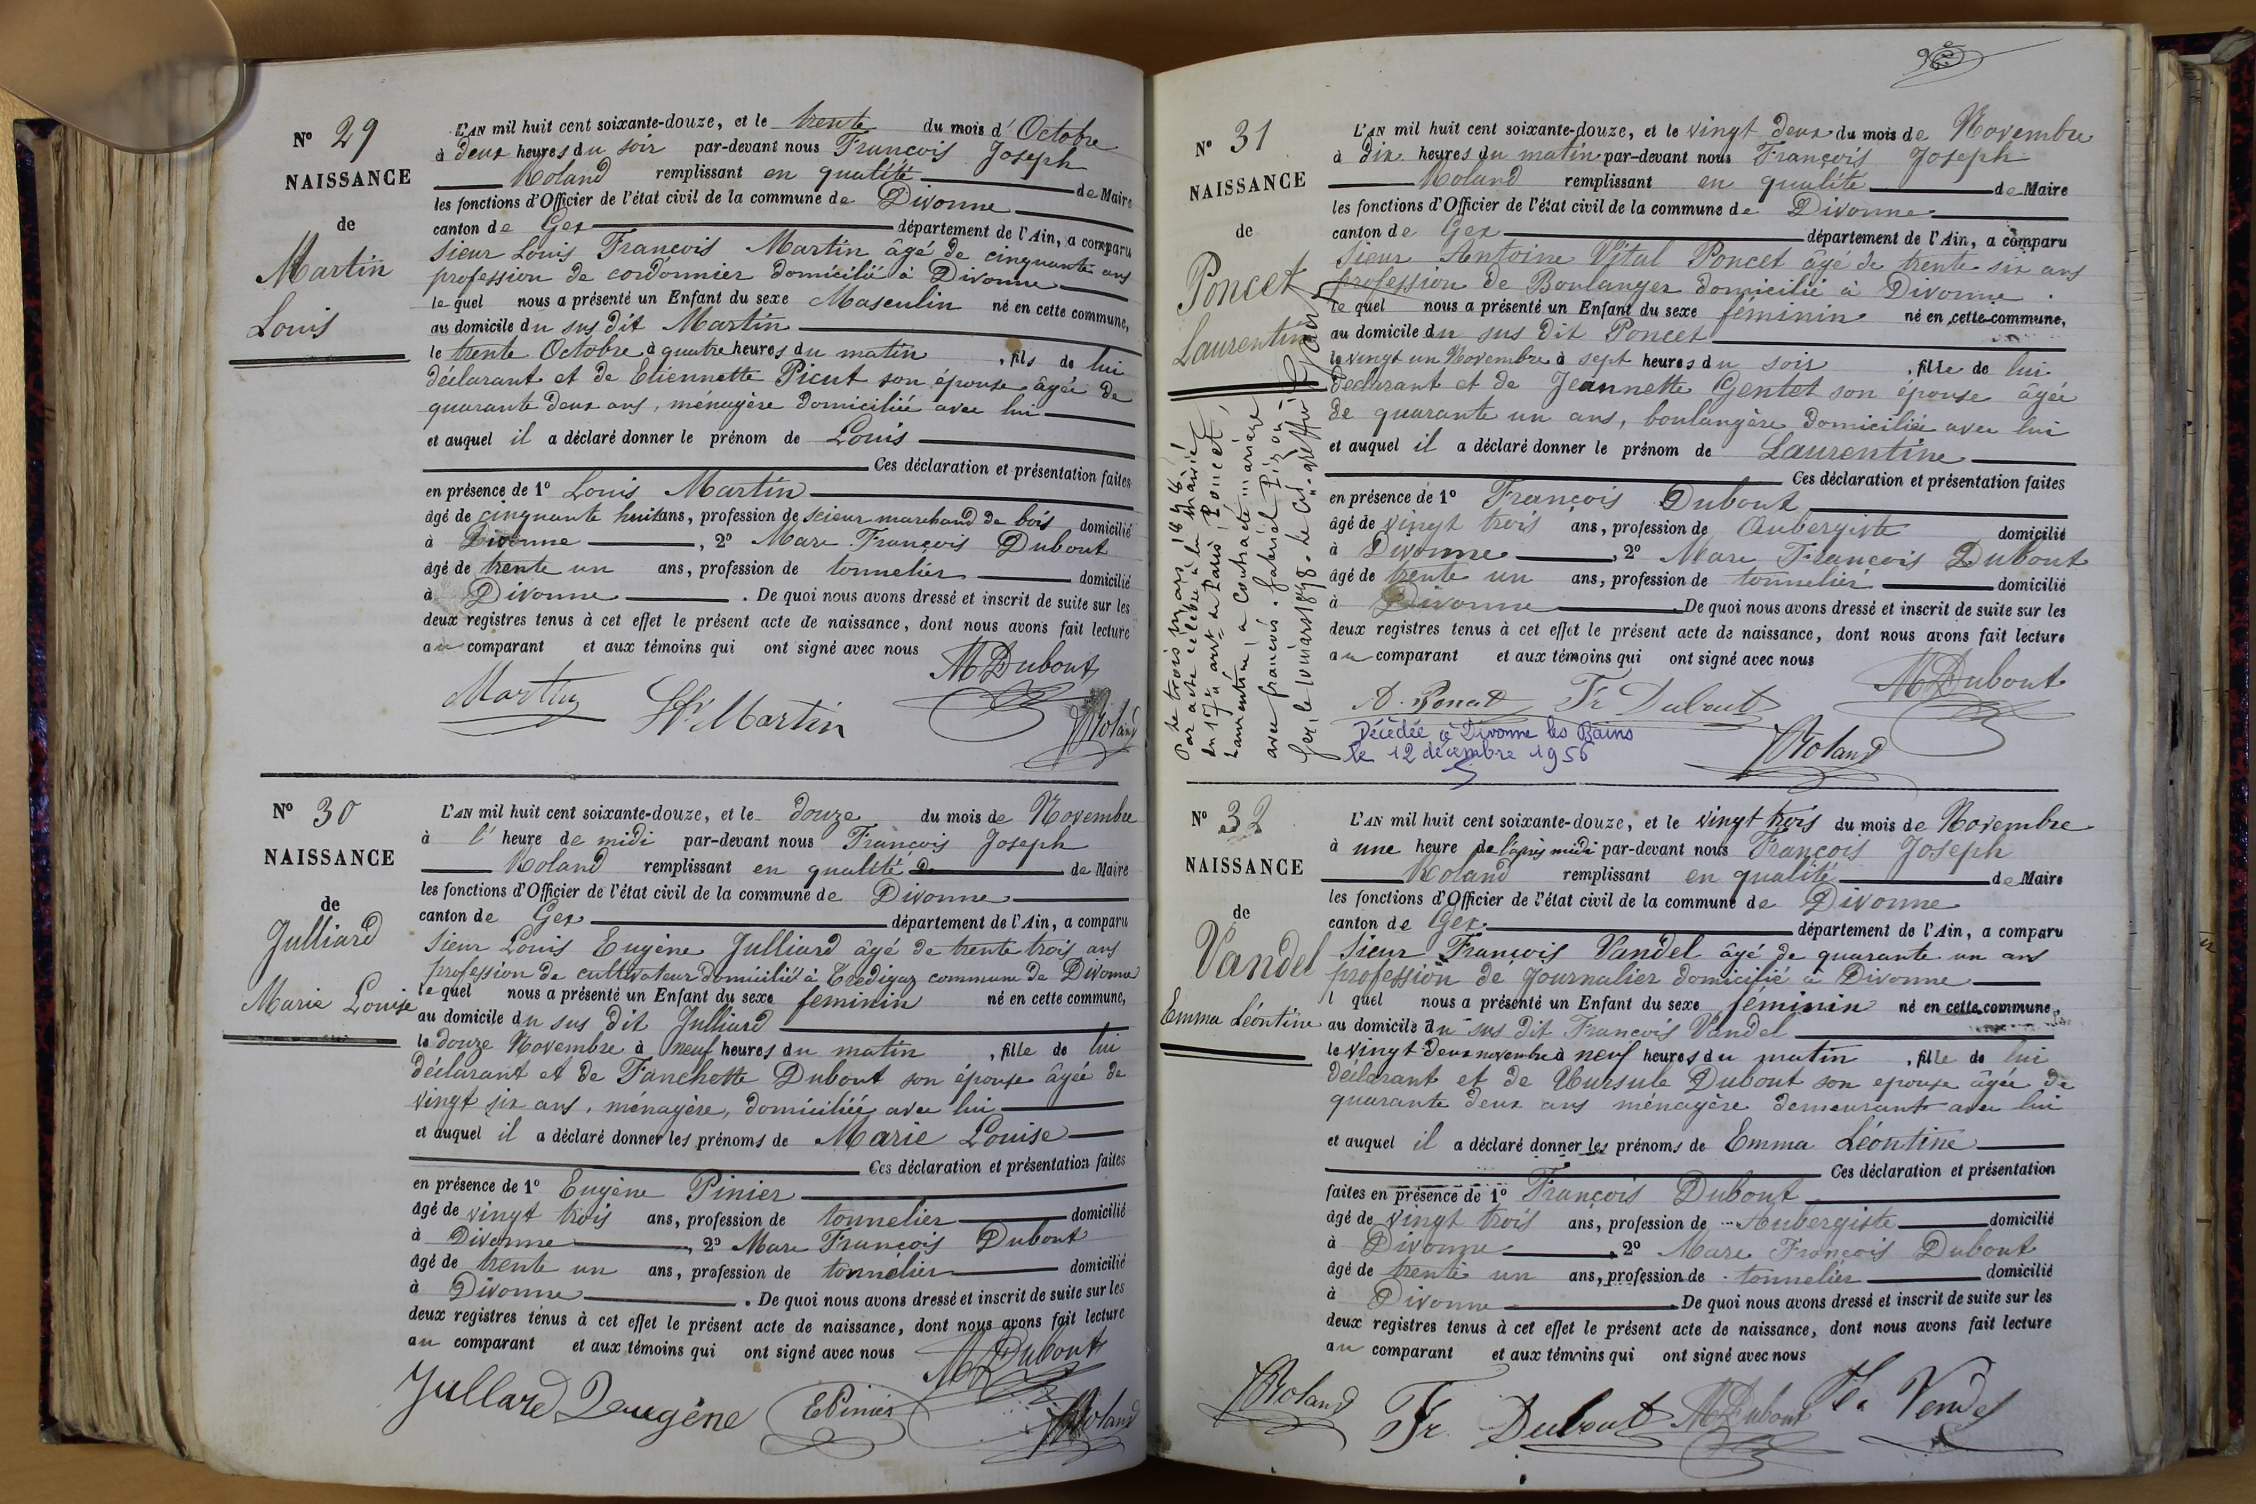 N° 29
NAISSANCE
de
Martin
Louis
L'AN mil huit cent soixante-douze, et le trente du mois d'Octobre
à deux heures du soir par-devant nous François Joseph
Roland remplissant en qualité de Maire
les fonctions d'Officier de l'état civil de la commune de Divonne
canton de Gex département de l'Ain, a comparu
Sieur Louis François Martin âgé de cinquante ans
profession de cordonnier domicilié à Divonne
lequel nous a présenté un Enfant du sexe Masculin né en cette commune,
au domicile du sus dit Martin
le trente Octobre à quatre heures du matin, fils de lui
déclarant et de Etiennette Picut son épouse âgée de
quarante deux ans, ménagère domiciliée avec lui
et auquel il a déclaré donner le prénom de Louis
Ces déclaration et présentation faites
en présence de 1° Louis Martin
âgé de cinquante huit ans, profession de scieur marchand de bois domicilié
à Divonne, 2° Marc François Dubout
âgé de trente un ans, profession de tonnelier domicilié
à Divonne. De quoi nous avons dressé et inscrit de suite sur les
deux registres tenus à cet effet le présent acte de naissance, dont nous avons fait lecture
au comparant et aux témoins qui ont signé avec nous
M Dubout
Martin Ls Martin
JRoland
N° 30
NAISSANCE
de
Julliard
Marie Louise
L'AN mil huit cent soixante-douze, et le douze du mois de Novembre
à l'heure de midi par-devant nous François Joseph
Roland remplissant en qualité de de Maire
les fonctions d'Officier de l'état civil de la commune de Divonne
canton de Gex département de l'Ain, a comparu
Sieur Louis Eugène Julliard âgé de trente trois ans
profession de cultivateur domicilié à Crédigaz commune de Divonne
lequel nous a présenté un Enfant du sexe feminin né en cette commune,
au domicile du sus dit Julliard
le douze Novembre à neuf heures du matin, fille de lui
déclarant et de Fanchette Dubout son épouse âgée de
vingt six ans, ménagère, domiciliée avec lui
et auquel il a déclaré donner les prénoms de Marie Louise
Ces déclaration et présentation faites
en présence de 1° Eugène Pinier
âgé de vingt trois ans, profession de tonnelier domicilié
à Divonne, 2° Marc François Dubout
âgé de trente un ans, profession de tonnelier domicilié
à Divonne. De quoi nous avons dressé et inscrit de suite sur les
deux registres tenus à cet effet le présent acte de naissance, dont nous avons fait lecture
au comparant et aux témoins qui ont signé avec nous
M Dubout
Jullard Leugène EPinier JRoland
N° 31
NAISSANCE
de
Poncet
Laurentine
Par acte célébré à la Mairie
du 17e arrt de Paris, Poncet,
Laurentine, a contracté mariage
L'AN mil huit cent soixante-douze, et le vingt deux du mois de Novembre
à dix heures du matin par-devant nous François Joseph
Roland remplissant en qualité de Maire
les fonctions d'Officier de l'état civil de la commune de Divonne
canton de Gex département de l'Ain, a comparu
Sieur Antoine Vital Poncet âgé de trente six ans
profession de Boulanger domicilié à Divonne.
lequel nous a présenté un Enfant du sexe féminin né en cette commune,
au domicile du sus dit Poncet
le vingt un Novembre à sept heures du soir, fille de lui
déclarant et de Jeannette Gentet son épouse âgée
de quarante un ans, boulangère domiciliée avec lui
et auquel il a déclaré donner le prénom de Laurentine
Ces déclaration et présentation faites
en présence de 1° François Dubout
âgé de vingt trois ans, profession de Aubergiste domicilié
à Divonne, 2° Marc François Dubout
âgé de trente un ans, profession de tonnelier domicilié
à Divonne. De quoi nous avons dressé et inscrit de suite sur les
deux registres tenus à cet effet le présent acte de naissance, dont nous avons fait lecture
au comparant et aux témoins qui ont signé avec nous
A. Poncet Fr Dubout M Dubout
Décédée à Divonne les Bains
le 12 décembre 1956
JRoland
N° 32
NAISSANCE
de
Vandel
Emma Léontine
L'AN mil huit cent soixante-douze, et le vingt trois du mois de Novembre
à une heure de l'après midi par-devant nous François Joseph
Roland remplissant en qualité de Maire
les fonctions d'Officier de l'état civil de la commune de Divonne
canton de Gex département de l'Ain, a comparu
Sieur François Vandel âgé de quarante un ans
profession de Journalier domicilié à Divonne
l quel nous a présenté un Enfant du sexe feminin né en cette commune,
au domicile du sus dit François Vandel
le vingt-deux novembre à neuf heures du matin, fille de lui
déclarant et de Uursule Dubout son epouse âgée de
quarante deux ans ménagère demeurant avec lui
et auquel il a déclaré donner les prénoms de Emma Léontine
Ces déclaration et présentation
faites en présence de 1° François Dubout
âgé de vingt trois ans, profession de Aubergiste domicilié
à Divonne, 2° Marc François Dubout
âgé de trente un ans, profession de tonnelier domicilié
à Divonne. De quoi nous avons dressé et inscrit de suite sur les
deux registres tenus à cet effet le présent acte de naissance, dont nous avons fait lecture
au comparant et aux témoins qui ont signé avec nous
JRoland Fr Dubout M Dubout Vendel